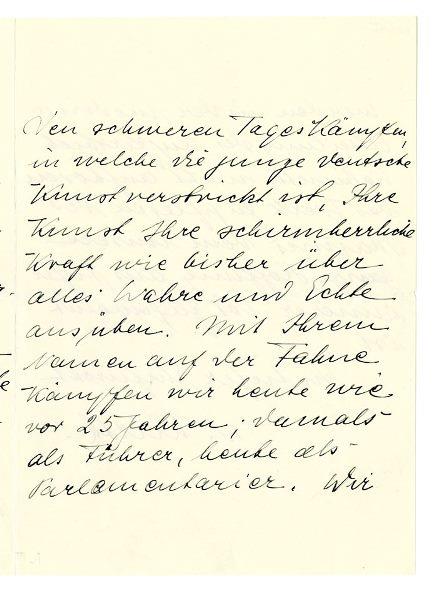 den schweren Tageskämpfen,
in welche die junge deutsche
Kunst verstrickt ist, Ihre
Kunst Ihre schirmherrliche
Kraft wie bisher über
alles Wahre und Echte
ausüben. Mit Ihrem
Namen auf der Fahne
kämpfen wir heute wie
vor 25 Jahren; damals
als Führer, heute als
Parlamentarier. Wir